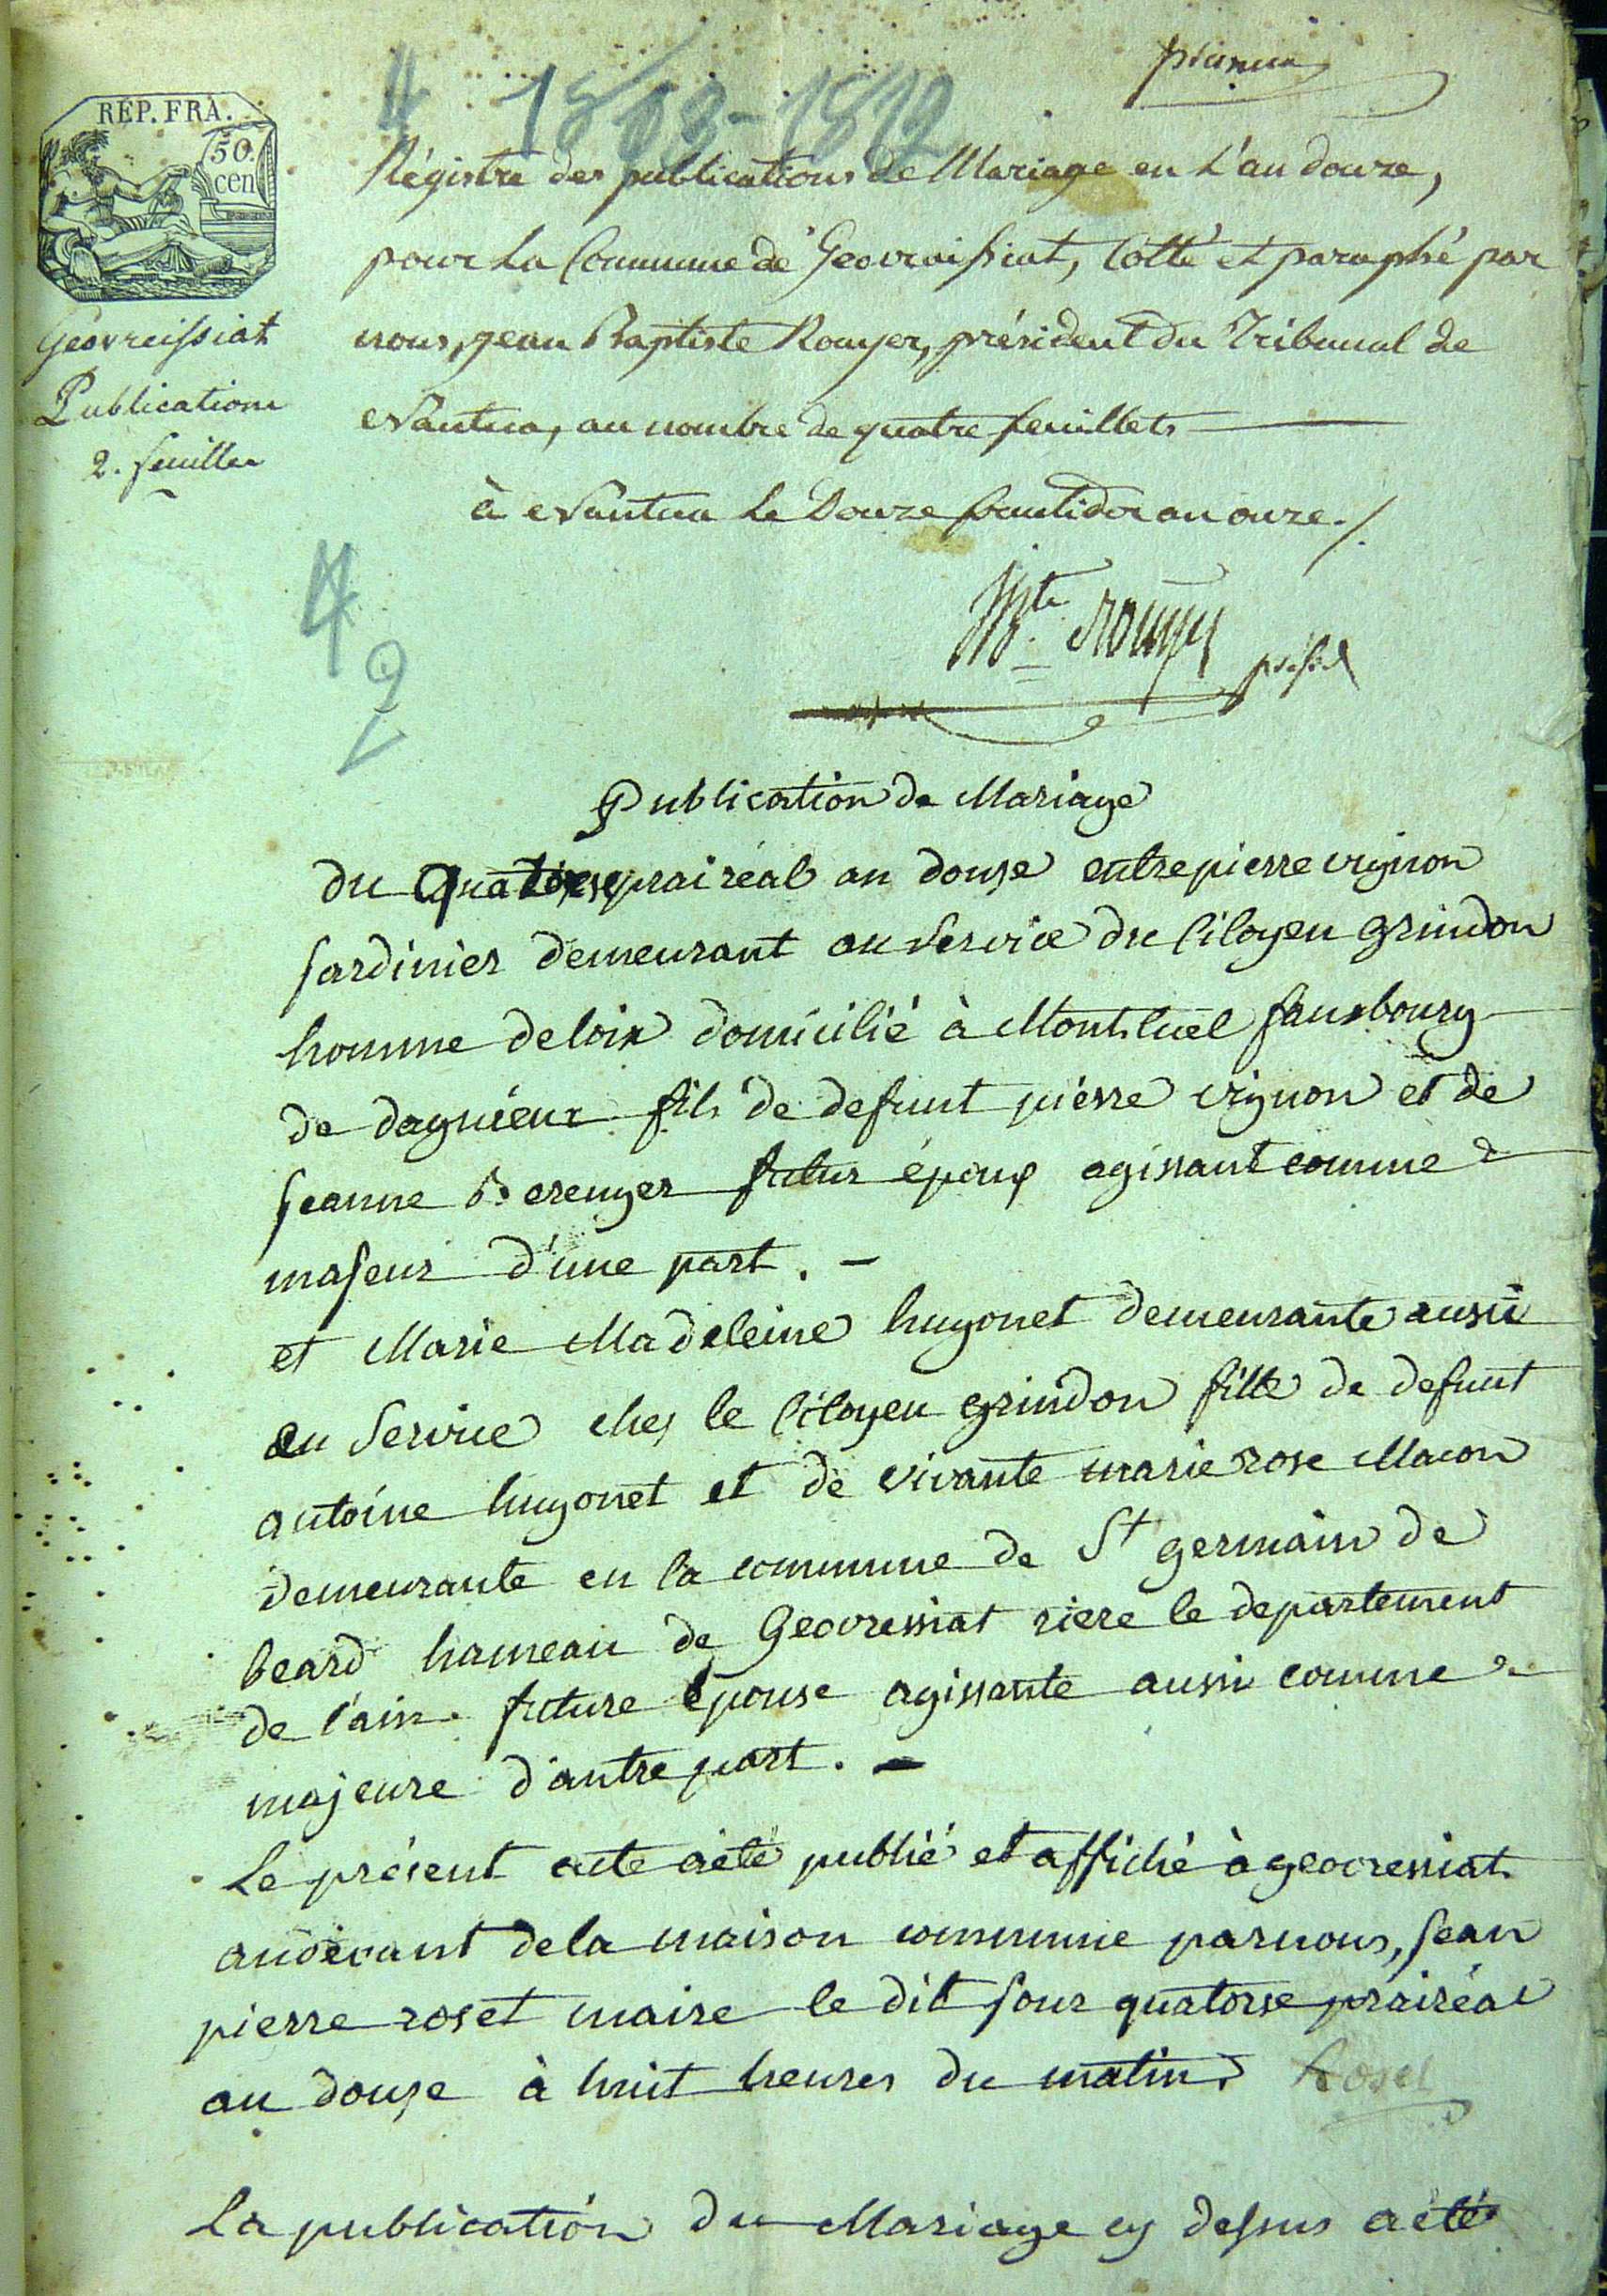 premier
1803-1812
REP. FRA.
50.
cen
Régistre des publications de Mariage en L'an douze,
pour La Commune de Geovreissiat, Cotté et paraphé par
nous, jean Baptiste Rouyer, président du Tribunal de
Nantua, au nombre de quatre feuillets
à Nantua Le Douze fructidor an onze./.
Geovreissiat
Publications
2. feuilles
4
2
JBte Rouyer
Publication de Mariage
du quatorse prairéal an douse entre pierre vignon
jardinier demeurant au Service du Citoyen grindon
homme de loix domicilié à Montluel fauxbourg
de dagnieux fils de defunt pierre vignon et de
jeanne Berenger futur époux agissant comme
majeur d'une part. -
et Marie Madeleine hugonet demeurante aussi
au Service ches le Citoyen grindon fille de defunt
antoine hugonet et de vivante marie rose Macon
demeurante en la commune de St germain de
beard hameau de Geovressiat riere le departement
de l'ain future épouse agissante aussi comme
majeure d'autre part. -
Le présent acte aété publié et affiché à geovressiat
audevant dela maison commune parnous, jean
pierre roset maire le dit jour quatorse prairéal
an douse à huit heures du matin. Roset
La publication du Mariage cy dessus aété